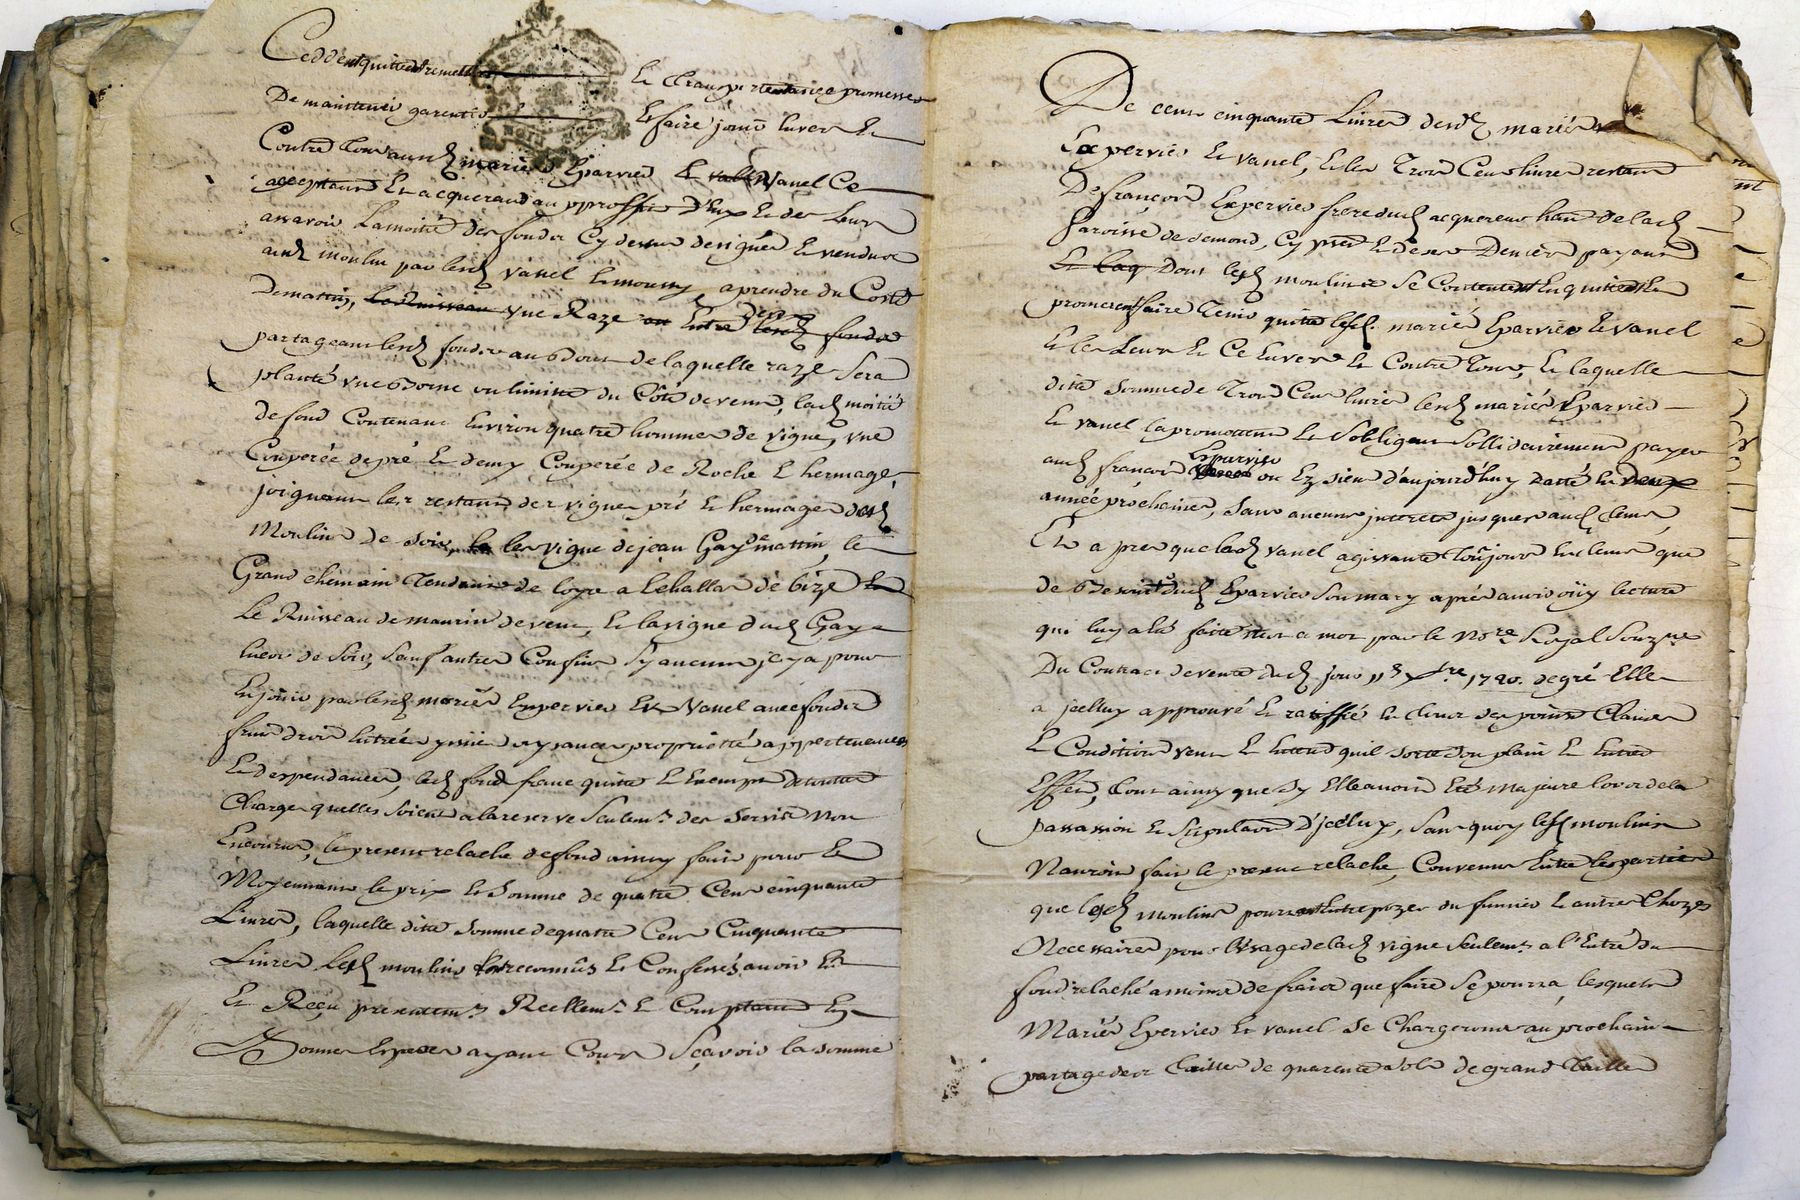 Ceddent quittent remettent et transportent avec promesses
De maintenir garentir et faire jouir envers et
Contre tous auxd mariés Eparvier et Vanel Ce
acceptant et acquerand au proffit D'Eux et des leurs
assavoir Lamoitié des fondz Cy dessus designés et vendus
aud moulin par lesd Vanel Limouny a prendre du Costé
De mattin, vne Raze Entre
partageant lesd fondz au Bout de laquelle raze sera
planté vne Borne ou limitte du Côté de vent, lad moitié
de fond Contenant Environ quatre hommes de vigne, vne
Couperée de pré et demy Couperée de Roche et hermage,
joignant les restant des vignes pré et hermage desd
Moulins de soir, les vigne de jean Gay de mattin, le
Grand chemain Tendant de loyre a Lehallas de bize
Le Ruisseau de maurin de vent, et la vigne dud Gay
de soir, sauf autres Confins sy aucuns je y a pour
En jouir par lesd mariés Expervier Et Vanel avec fondz
fruit droit Entrée yssüe aysances proprietté appertenances
Et dependances, led fond franc quitte et Exempt de touttes
Charges quelles soient a la reserve seulemt des servis non
Encourus, le present relache de fond ainsy fait pour et
Moyennant le prix et somme de quatre Cent cinquante
Livres, laquelle ditte somme de quatre Cent Cinquante
Livres lesd moulins ont reconnus et Confessés avoir Eu
Et Reçu presentemt Reellemt et Comptant En
Bonnes Espèces ayant Cours Sçavoir la somme
De cent cinquante Livres desd mariés
Expervier et vanel, Et les Trois Cent livres restant
De françois Expervier frere dud acquereur hant de lad
Paroisse de semond, Cy pnt et de ses Deniers payant
Dont lesd moulins se Contentent En quittent Et
promettent faire Tenir quitte lesd mariés Eparvier et Vanel
Et les Leurs et Ce Envers et Contre Tous, Et laquelle
ditte somme de Trois Cent livres lesd mariés Eparvier
Et vanel la promettent et s'obligent sollidairement payer
aud francois Eparvier ou Ez siens d'aujourd'huy datté En Deux
année prochaines, sans aucuns jnterets jusques aud tems,
Et apres que lad Vanel agissante Toujours
de dud Eparvier son mary après avoir oüy lecture
qui luy a été faitte mot a mot par le Nore Royal Souzne
Du Contract de vente dud jour 11e xbre 1720. de gré Elle
a jcelluy approuvé et ratiffié En tous ses points Clauses
Et Conditions veut et Entend quil sorte son plain et Entier
Effet, tout ainsy que sy Elle avoit Eté majeure lors de la
passassion et stipulation D'jcelluy, sans quoy lesd moulins
Nauroit fait le present relache, Convenus Entre les parties
que lesd moulins pourront Entreposer du fumier et autres Chozes
Necessaires pour l'Usage de lad vigne seulemt a l'Entré du
fond relaché a moins de frais que faire se pourra, lesquels
Mariés Epervier et vanel se Chargeront au prochain
partage des Tailles de quarente sols de grand Taille